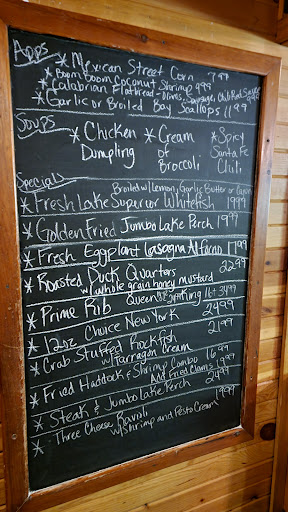 Apps
* Mexican Street Corn 7.99
* Boom Boom Coconut Shrimp 9.99
* Calabrian Flatbread - Olives, Sausage, Chili Red Sauce
* Garlic or Broiled Bay Scallops 11.99
Soups
* Chicken Dumpling
* Cream of Broccoli
* Spicy Santa Fe Chili
Specials
Broiled w/ Lemon, Garlic Butter or Cajun
* Fresh Lake Superior Whitefish 19.99
* Golden Fried Jumbo Lake Perch 19.99
* Fresh Eggplant Lasagna Alforno 17.99
* Roasted Duck Quartors 22.99
w/ whole grain honey mustard
* Prime Rib Queen King 16z 34.99
* 12oz Choice New York 24.99
* Crab Stuffed Rockfish 21.99
w/ Tarragon Cream
* Fried Haddock & Shrimp Combo 16.99
Add Fried Clams 19.99
* Steak & Jumbo Lake Perch 24.99
* Three Cheese Ravioli 19.99
w/ Shrimp and Pesto Cream